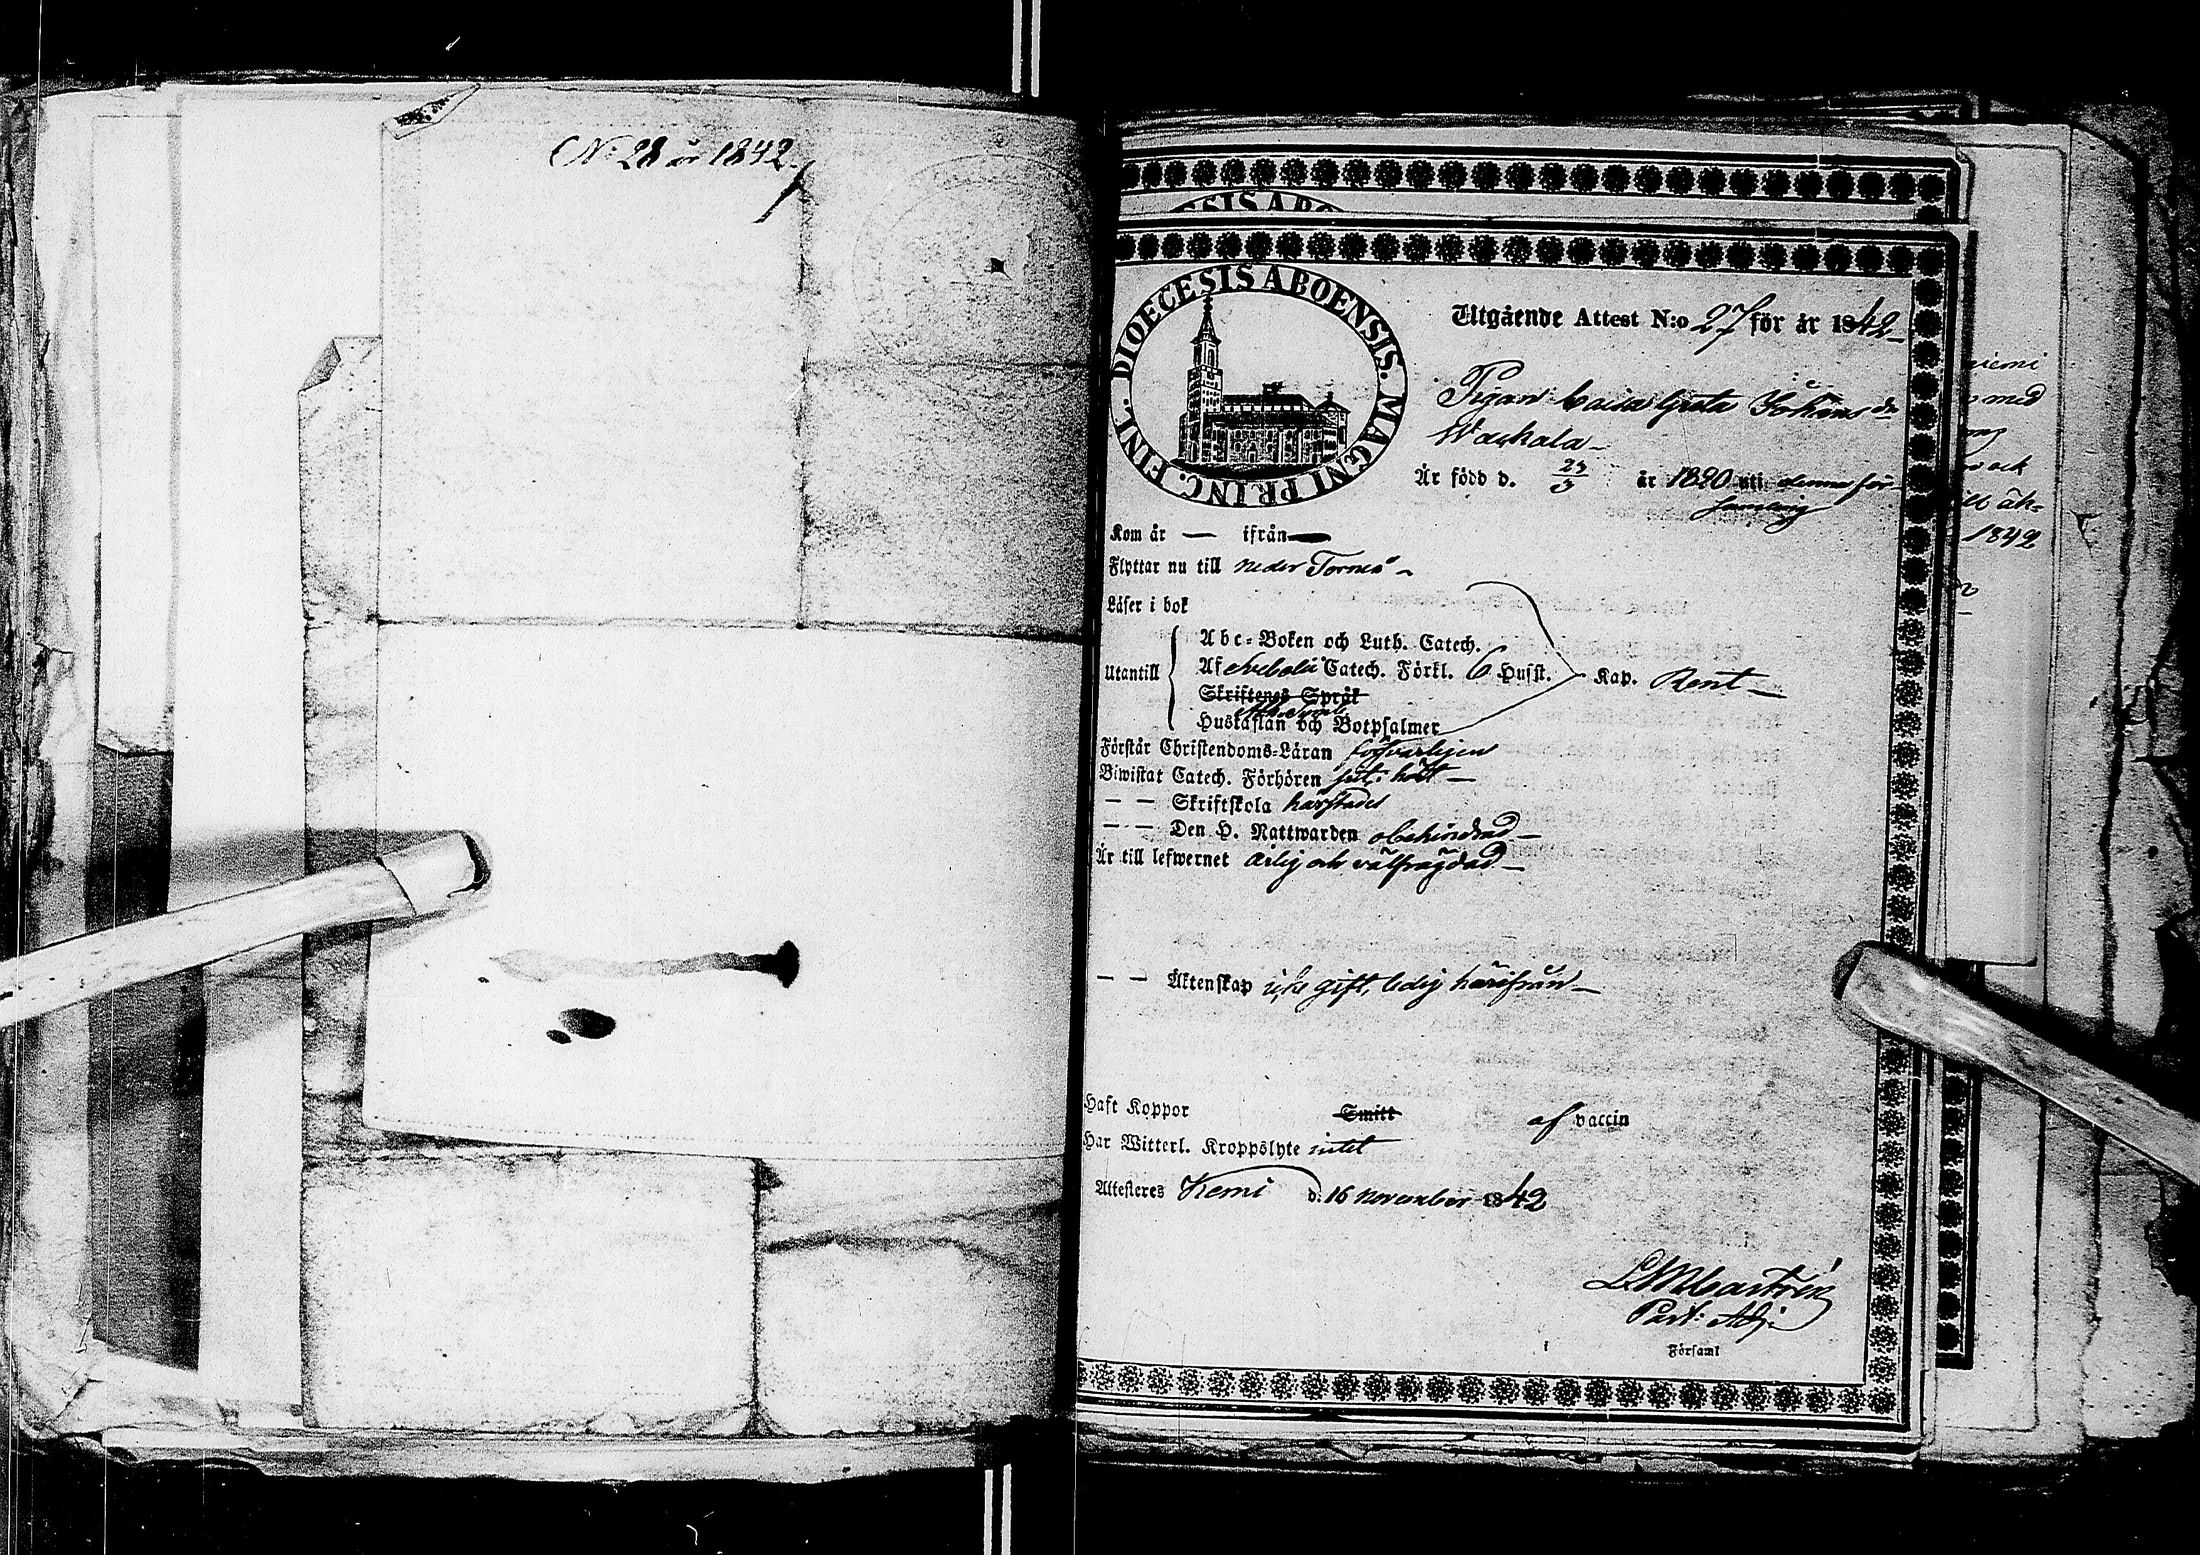 No 28 år 1842.
ESIS ABO
DIOECESIS ABOENSIS. MAGNI PRINC. FINL.
Utgående Attest N:o 27 för år 1842
Pigan Caisa Greta Johans dr
Waskala
Är född d. 23/3 år 1820 uti denna för-
samling
Kom år — ifrån —
Flyttar nu till neder Torneå
Läser i bok
Utantill
Abc-Boken och Luth. Catech.
Af Svebelii Catech. Förkl. 6 Husst. Kap. Rent
Skriftenes Språk
Ath. Symb.
Hustaflan och Botpsalmer
Förstår Christendoms-Läran försvarligen
Biwistat Catech. Förhören
— — Skriftskola härstädes
— — Den H. Nattwarden obehindrad
Är till lefwernet ärlig och välfrägdad
— — Äktenskap icke gift, ledig härifrån
Haft Koppor Smitt af vaccin
Har Witterl. Kroppslyte intet
Attesteres Kemi d. 16 november 1842
Castrén
Past: Adj:
Församl
niemi
med
och
till äk-
1842